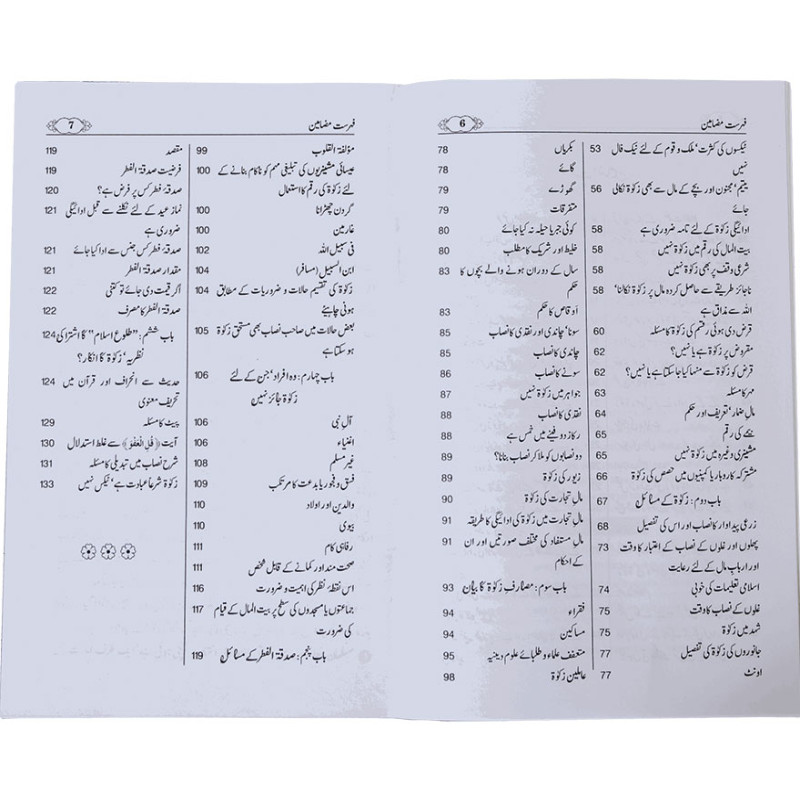 فہرست مضامین
6
ٹیکسوں کی کثرت‘ ملک و قوم کے لئے نیک فال 53
نہیں
یتیم‘ مجنون اور بچے کے مال سے بھی زکوٰۃ نکالی 56
جائے
ادائیگی زکوٰۃ کے لئے نامہ ضروری ہے 58
بیت المال کی رقم میں زکوٰۃ نہیں 58
شرعی وقف پر بھی زکوٰۃ نہیں 58
ناجائز طریقے سے حاصل کردہ مال پر زکوٰۃ نکالنا‘ 58
اللہ سے مذاق ہے
قرض دی ہوئی رقم کی زکوٰۃ کا مسئلہ 60
مقروض پر زکوٰۃ ہے یا نہیں؟ 62
قرض کو زکوٰۃ سے منہا کیا جا سکتا ہے یا نہیں؟ 62
مہر کا مسئلہ 63
مال ضمار‘ تعریف اور حکم 64
جمے کی رقم 65
مشینری وغیرہ میں زکوٰۃ نہیں 65
مشترکہ کاروبار یا کمپنیوں میں حصص کی زکوٰۃ 66
باب دوم: زکوٰۃ کے مسائل 67
زرعی پیداوار کا نصاب اور اس کی تفصیل 68
پھلوں اور غلوں کے نصاب کے اعتبار کا وقت 73
اور ارباب مال کے لئے رعایت
اسلامی تعلیمات کی خوبی 74
غلوں کے نصاب کا وقت 75
شہد میں زکوٰۃ 75
جانوروں کی زکوٰۃ کی تفصیل 77
اونٹ 77
بکریاں 78
گائے 78
گھوڑے 79
متفرقات 79
کوئی جبر یا حیلہ نہ کیا جائے 80
خلیط اور شریک کا مطلب 80
سال کے دوران ہونے والے بچوں کا 83
حکم
اوقاص کا حکم 83
سونا‘ چاندی اور نقدی کا نصاب 85
چاندی کا نصاب 85
سونے کا نصاب 86
جواہر میں زکوٰۃ نہیں 87
نقدی کا نصاب 88
رکاز دفینے میں خمس ہے 88
دو نصابوں کو ملا کر نصاب بنانا؟ 89
زیور کی زکوٰۃ 89
مال تجارت کی زکوٰۃ 90
مال تجارت میں زکوٰۃ کی ادائیگی کا طریقہ 91
مال مستفاد کی مختلف صورتیں اور ان 91
کے احکام
باب سوم: مصارف زکوٰۃ کا بیان 93
فقراء 94
مساکین 94
متعفف علماء و طلبائے علوم دینیہ 95
عاملین زکوٰۃ 98
فہرست مضامین
7
مؤلفۃ القلوب 99
عیسائی مشنریوں کی تبلیغی مہم کو ناکام بنانے کے 100
لئے زکوٰۃ کی رقم کا استعمال
گردن چھڑانا 100
غارمین 100
فی سبیل اللہ 102
ابن السبیل (مسافر) 104
زکوٰۃ کی تقسیم حالات و ضروریات کے مطابق 104
ہونی چاہیئے
بعض حالات میں صاحب نصاب بھی مستحق زکوٰۃ 105
ہو سکتا ہے
باب چہارم: وہ افراد‘ جن کے لئے 106
زکوٰۃ جائز نہیں
آل نبی 106
اغنیاء 106
غیر مسلم 108
فسق و فجور یا بدعت کا مرتکب 109
والدین اور اولاد 110
بیوی 110
رفاہی کام 111
صحت مند اور کمانے کے قابل شخص 111
اس نقطۂ نظر کی اہمیت و ضرورت 116
جماعتوں یا مسجدوں کی سطح پر بیت المال کے قیام 117
کی ضرورت
باب پنجم: صدقۃ الفطر کے مسائل 119
مقصد 119
فرضیت صدقۃ الفطر 119
صدقہ فطر کس پر فرض ہے؟ 120
نماز عید کے لئے نکلنے سے قبل ادائیگی 121
ضروری ہے
صدقہ فطر کس جنس سے ادا کیا جائے 121
مقدار صدقۃ الفطر 121
اگر قیمت دی جائے تو کتنی 122
صدقۃ الفطر کا مصرف 122
باب ششم: ”طلوع اسلام“ کا اشتراکی 124
نظریہ‘ زکوٰۃ کا انکار؟
حدیث سے انحراف اور قرآن میں 124
تحریف معنوی
پیٹ کا مسئلہ 129
آیت ﴿قُلِ الْعَفْوَ﴾ سے غلط استدلال 130
شرح نصاب میں تبدیلی کا مسئلہ 131
زکوٰۃ شرعاً عبادت ہے‘ ٹیکس نہیں 133